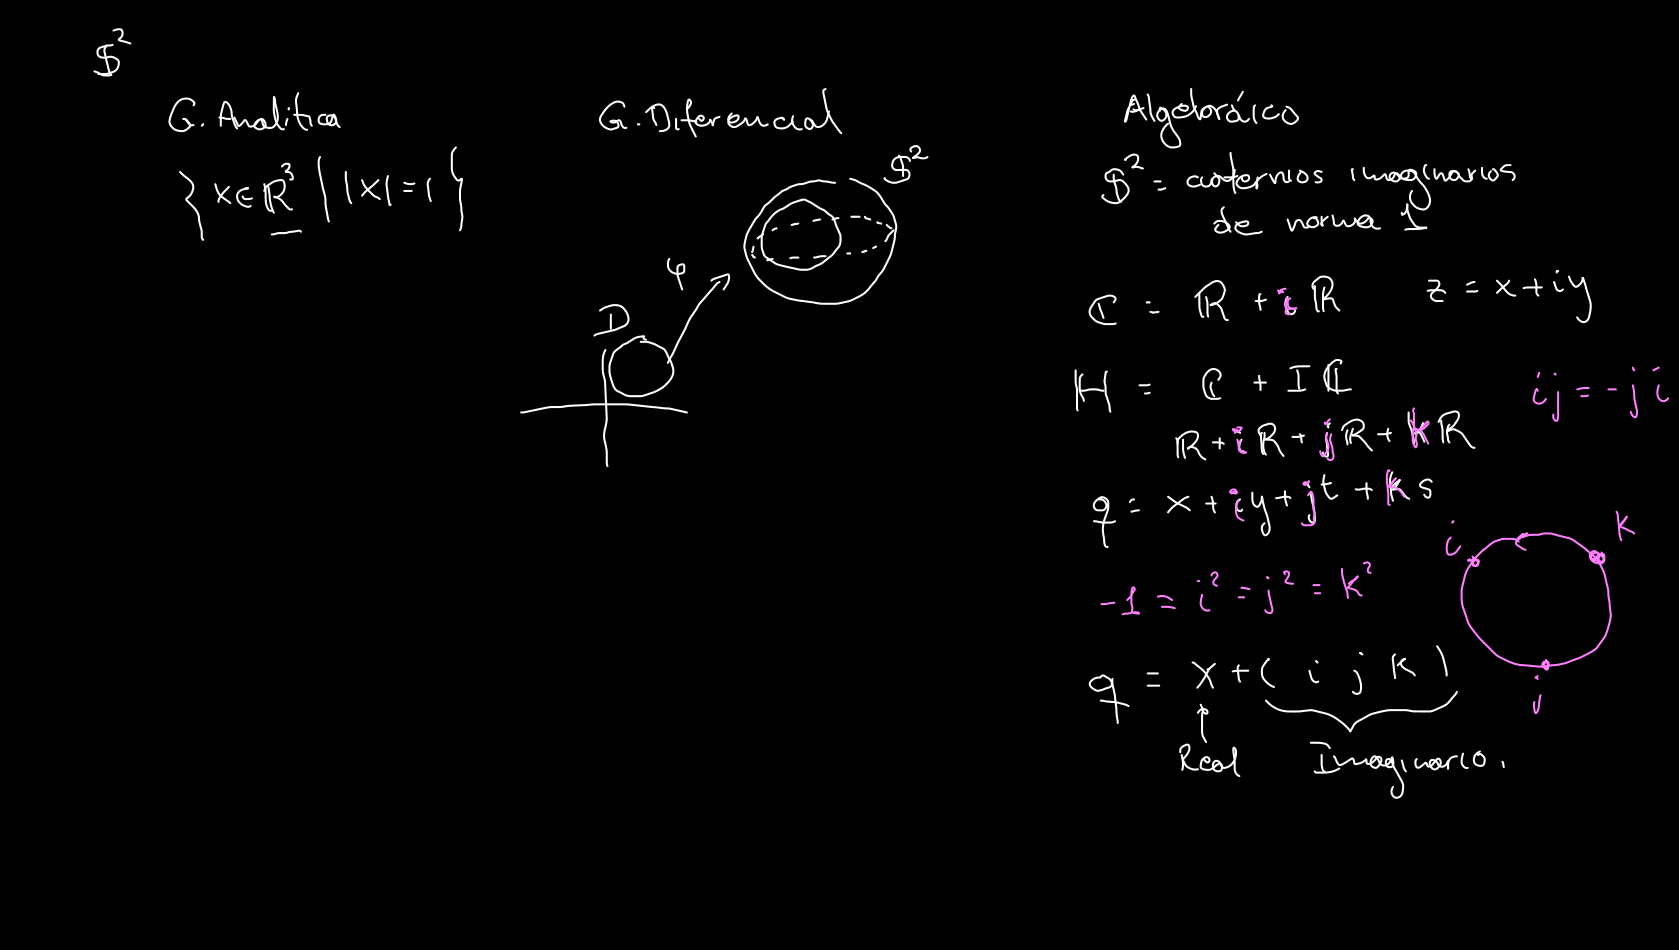 $²
G. Analítica
{ x ∈ ℝ³ | |x| = 1 }
G. Diferencial
$²
φ
D
Algebráico
$² = cuaternios imaginarios
de norma 1
ℂ = ℝ + iℝ
z = x + iy
ℍ = ℂ + Iℂ
ij = -ji
ℝ + iℝ + jℝ + kℝ
q = x + iy + jt + ks
i
k
j
-1 = i² = j² = k²
q = x + ( i j k )
Real
Imaginario.